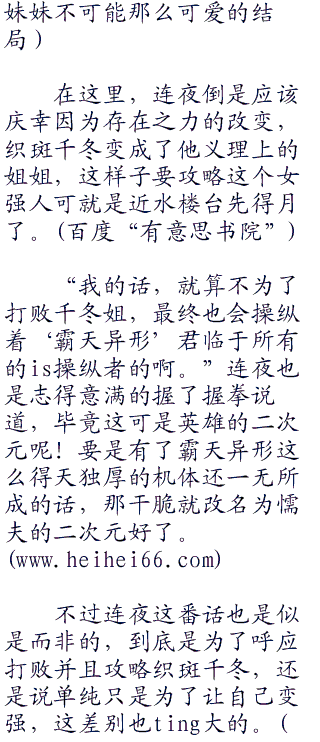 妹妹不可能那么可爱的结
局）
在这里，连夜倒是应该
庆幸因为存在之力的改变，
织斑千冬变成了他义理上的
姐姐，这样子要攻略这个女
强人可就是近水楼台先得月
了。(百度“有意思书院”)
“我的话，就算不为了
打败千冬姐，最终也会操纵
着‘霸天异形’君临于所有
的is操纵者的啊。”连夜也
是志得意满的握了握拳说
道，毕竟这可是英雄的二次
元呢！要是有了霸天异形这
么得天独厚的机体还一无所
成的话，那干脆就改名为懦
夫的二次元好了。
(www.heihei66.com)
不过连夜这番话也是似
是而非的，到底是为了呼应
打败并且攻略织斑千冬，还
是说单纯只是为了让自己变
强，这差别也ting大的。(